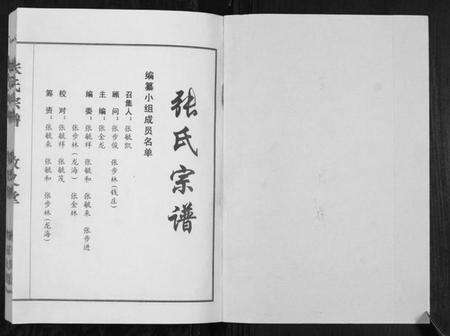 张氏宗谱
编纂小组成员名单
召集人：张敏凯
顾问：张步俊 张步林(钱庄)
主编：张金龙
编委：张敏祥 张敏和 张敏来 张步进
张步林(龙海) 张金林
校对：张敏祥 张敏茂
筹资：张敏来 张敏和 张步林(龙海)
张氏宗谱